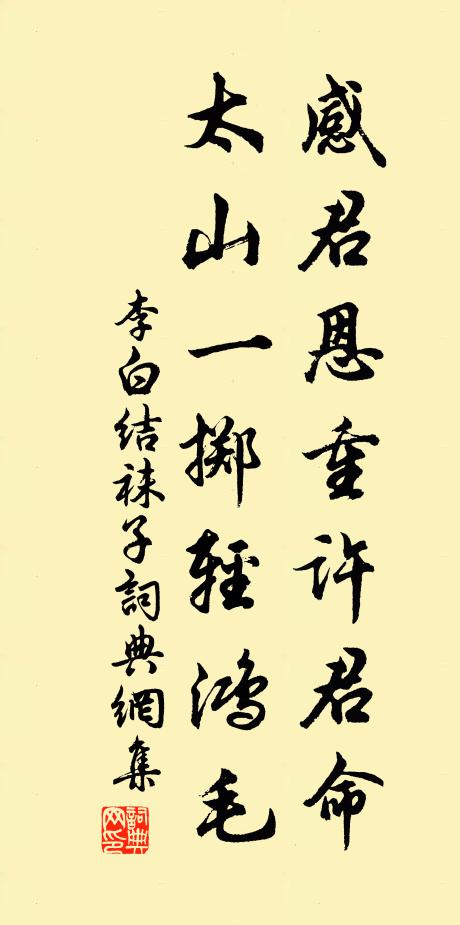 感君恩重許君命
太山一擲輕鴻毛
李白結袜子詞典網集
詞典網印